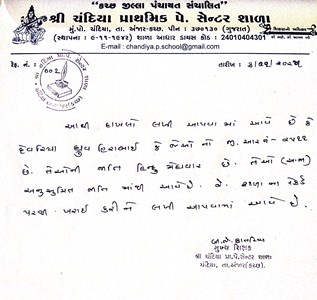 "કચ્છ જીલ્લા પંચાયત સંચાલિત"
શ્રી ચંદિયા પ્રાથમિક પે. સેન્ટર શાળા
મું.પો. ચંદિયા, તા. અંજાર-કચ્છ. પીન : ૩૭૦૧૩૦ (ગુજરાત)
(સ્થાપના : ૯-૧૧-૧૯૪૨) શાળા આધાર ડાયસ કોડ : 24010404301
E-mail : chandiya.p.school@gmail.com
રેફ. નં. : ૦૦૨
તારીખ :
આથી દાખલો લખી આપવા માં આવે છે કે
દેવરિયા ધ્રુવ હિરાભાઈ કે જેઓ નો જી. આર નં - ૨૫૧૧
છે. તેઓની જાતિ હિન્દુ મેઘવાર છે. તેઓ (અ.જા)
અનુસુચિત જાતિ માંથી આવે છે. શાળા ના રેકર્ડ
પરથી ખરાઈ કરી ને લખી આપવામાં આવે છે.
મુખ્ય શિક્ષક
શ્રી ચંદિયા પ્રા.પે.સેન્ટર શાળા
ચંદિયા, તા.અંજાર(કચ્છ)